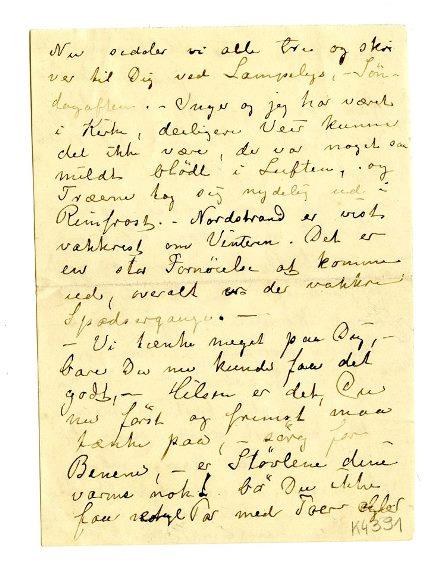 Nu sidder vi alle tre og skri
ver til Dig ved Lampelys, – Søn-
dagaften. – Inger og jeg har været
i Kirke, deiligere Veir kunne
det ikke være, der var noget saa
mildt blødt i Luften, og
Træerne tog sig nydelig ud i
Rimfrost. – Nordstrand er vist
vakkrest om Vinteren. Det er
en stor Fornøielse at komme
ud, overalt er der vakkre
Spadsergange. –
– Vi tænke meget paa Dig, –
bare Du nu kunde faa det
godt, – Helsen er det, Du
nu først og fremst maa
tænke paa, – sørg for
Benene, – er Støvlene dine
varme nok! bør Du ikke
faa Par med Foer
K4391